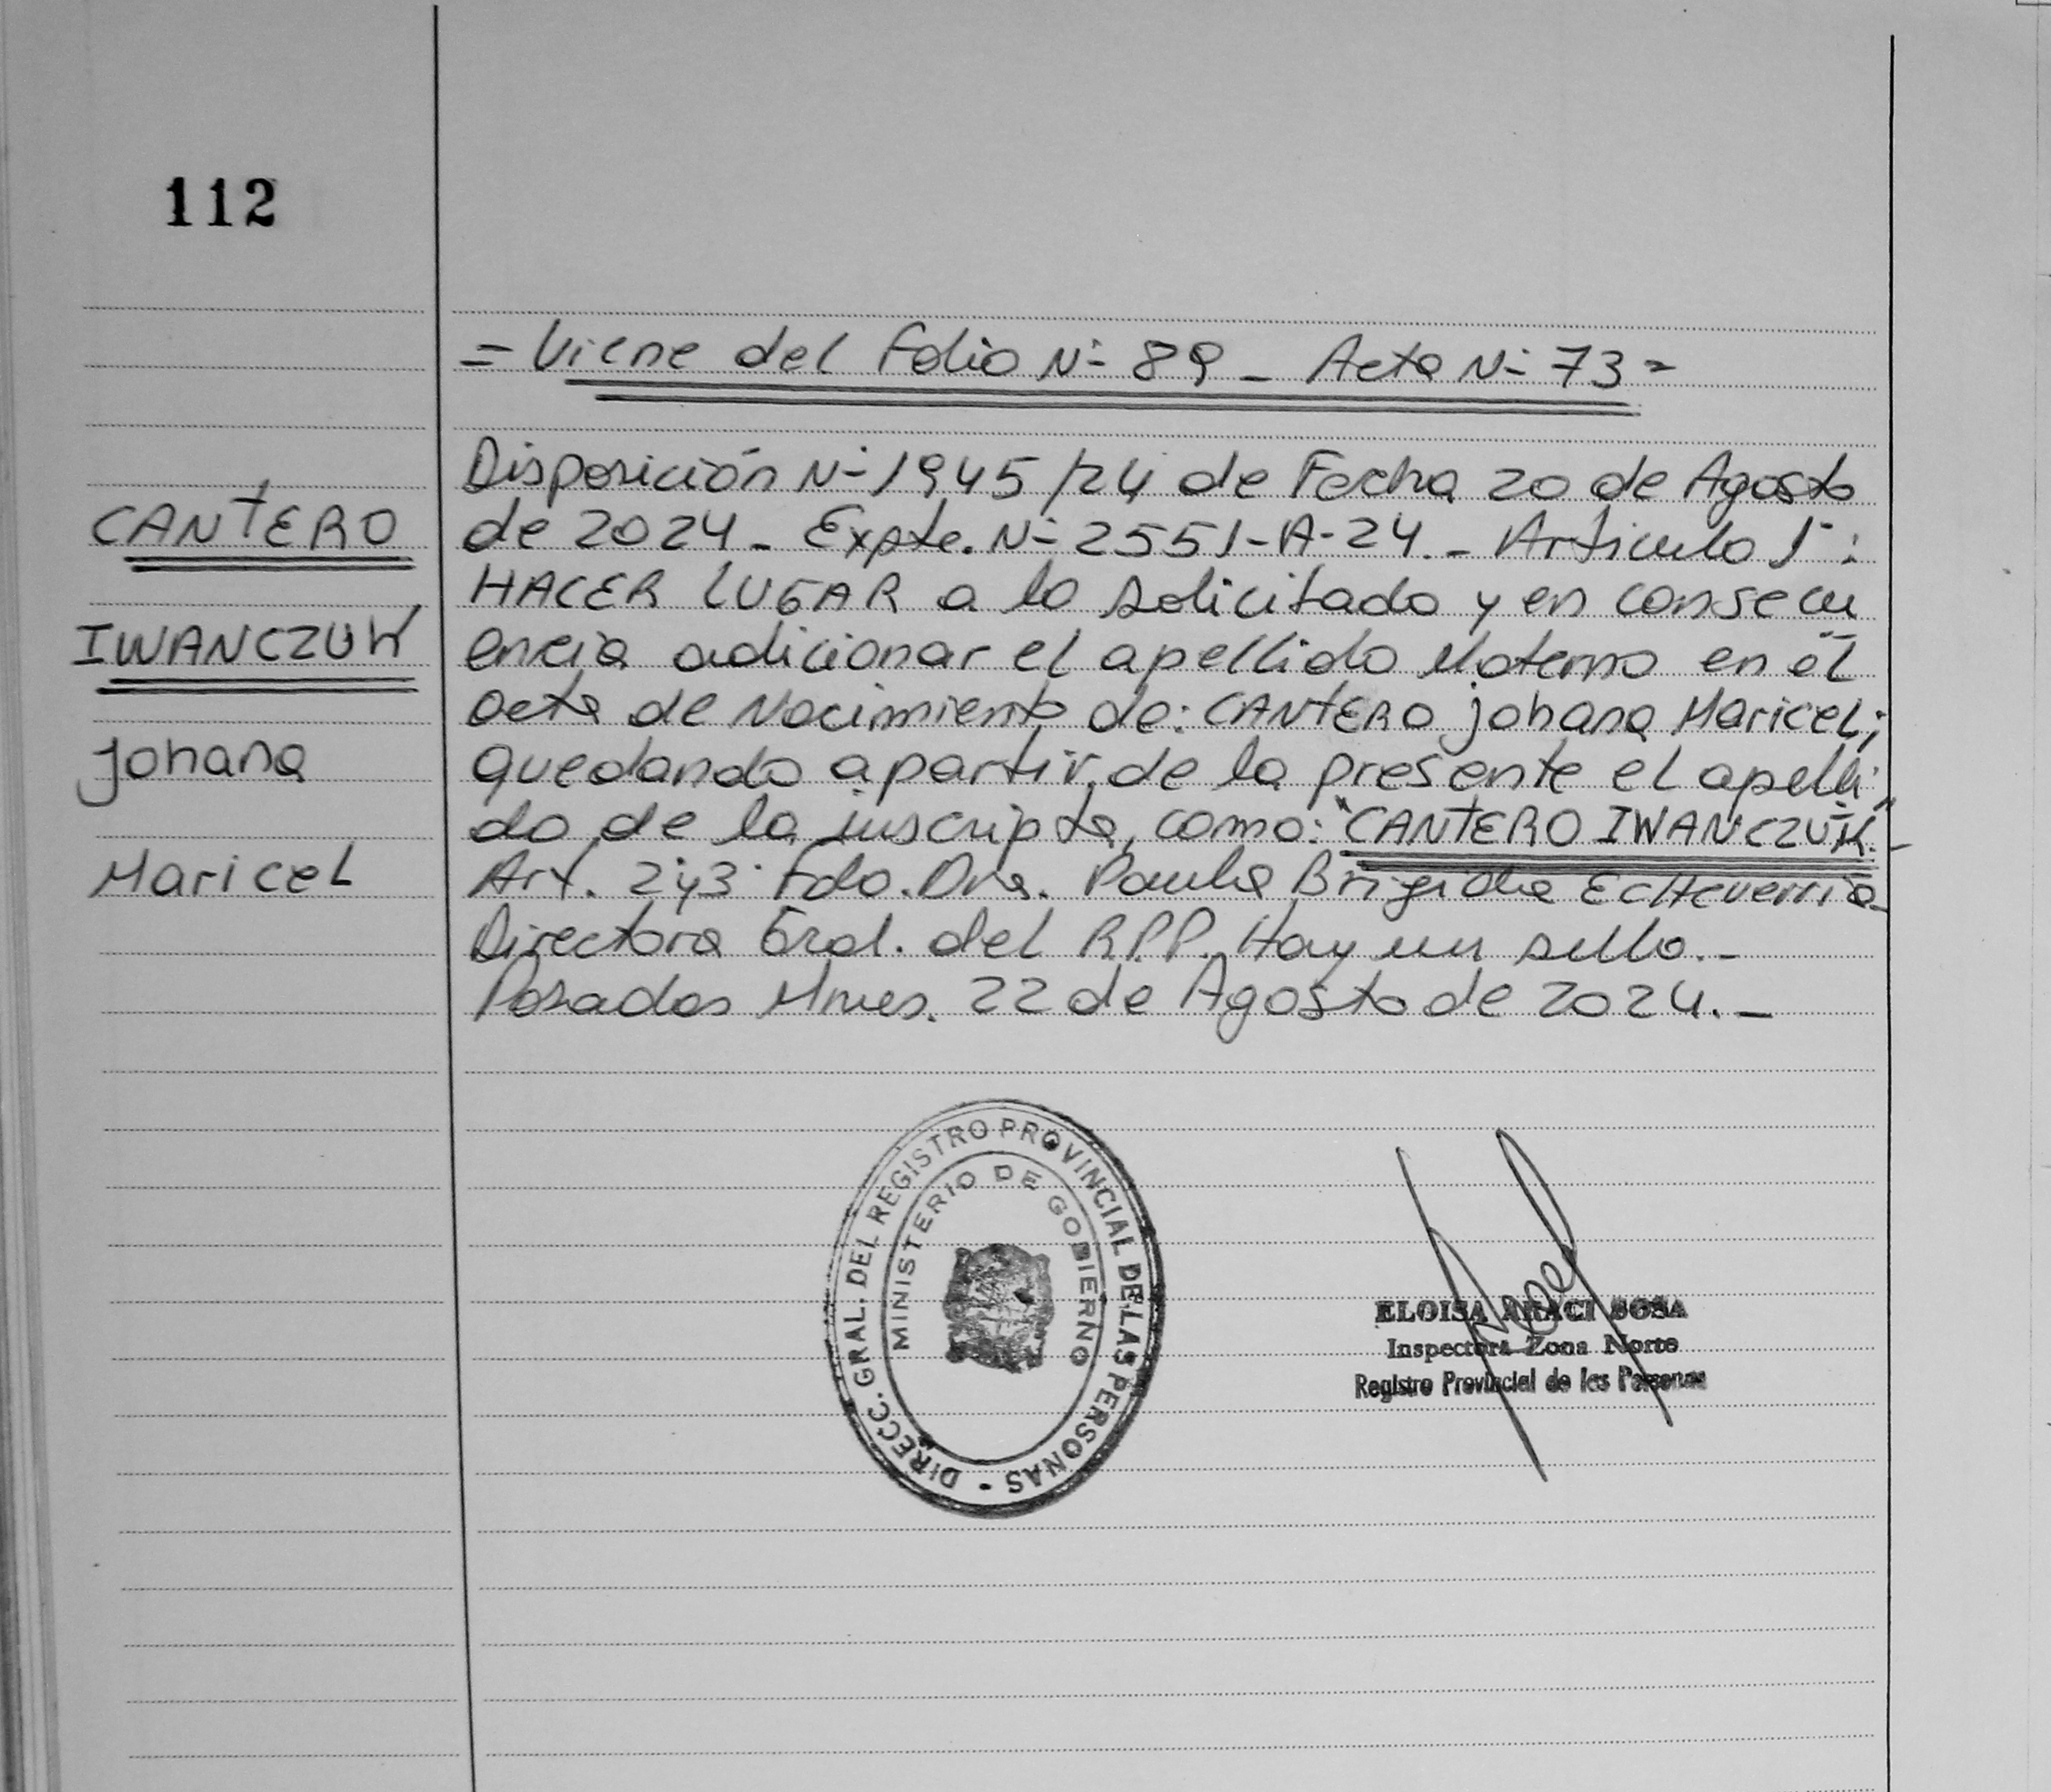 112
= Viene del Folio N- 89 - Acta N- 73 =
CANTERO
IWANCZUK
Johana
Maricel
Disposición N- 1945/24 de Fecha 20 de Agosto
de 2024 - Expte. N- 2551-A-24. - Articulo 1°:
HACER LUGAR a lo solicitado y en consecu
encia adicionar el apellido Materno en el
acta de Nacimiento de: CANTERO Johana Maricel;
quedando a partir de la presente el apelli
do de la inscripta, como: "CANTERO IWANCZUK". -
Art. 2° y 3° Fdo. Dra. Paula Brigida Echeverria -
Directora Gral. del R.P.P. Hay un sello. -
Posadas Mnes. 22 de Agosto de 2024. -
DIRECC. GRAL. DEL REGISTRO PROVINCIAL DE LAS PERSONAS -
MINISTERIO DE GOBIERNO
ELOISA ARACI SOSA
Inspectora Zona Norte
Registro Provincial de las Personas